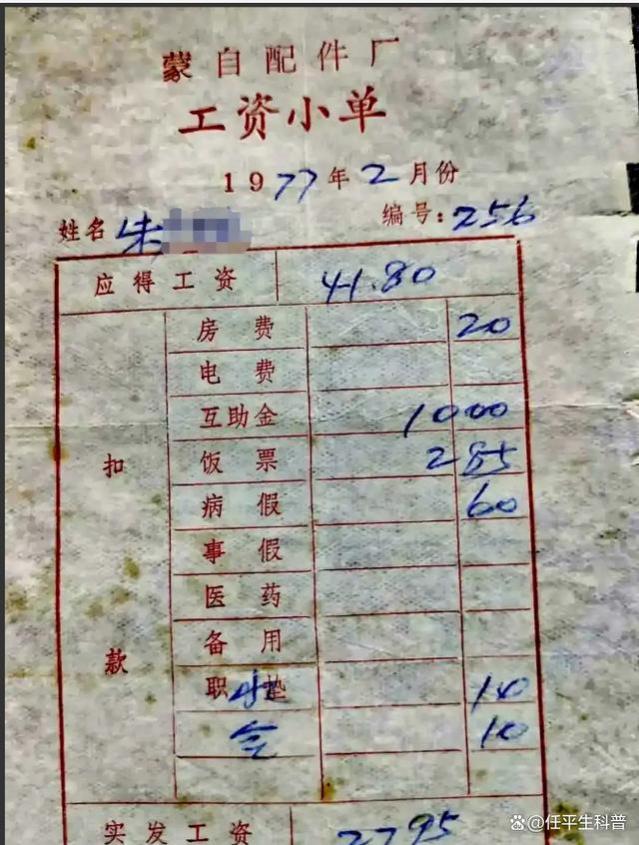 蒙自配件厂
工资小单
1977年2月份
姓名 朱
编号:256
应得工资 41.80
扣款
房费 20
电费
互助金 10 00
饭票 2 85
病假 60
事假
医药
备用
职 垫 10
10
实发工资 27 95
@任平生科普